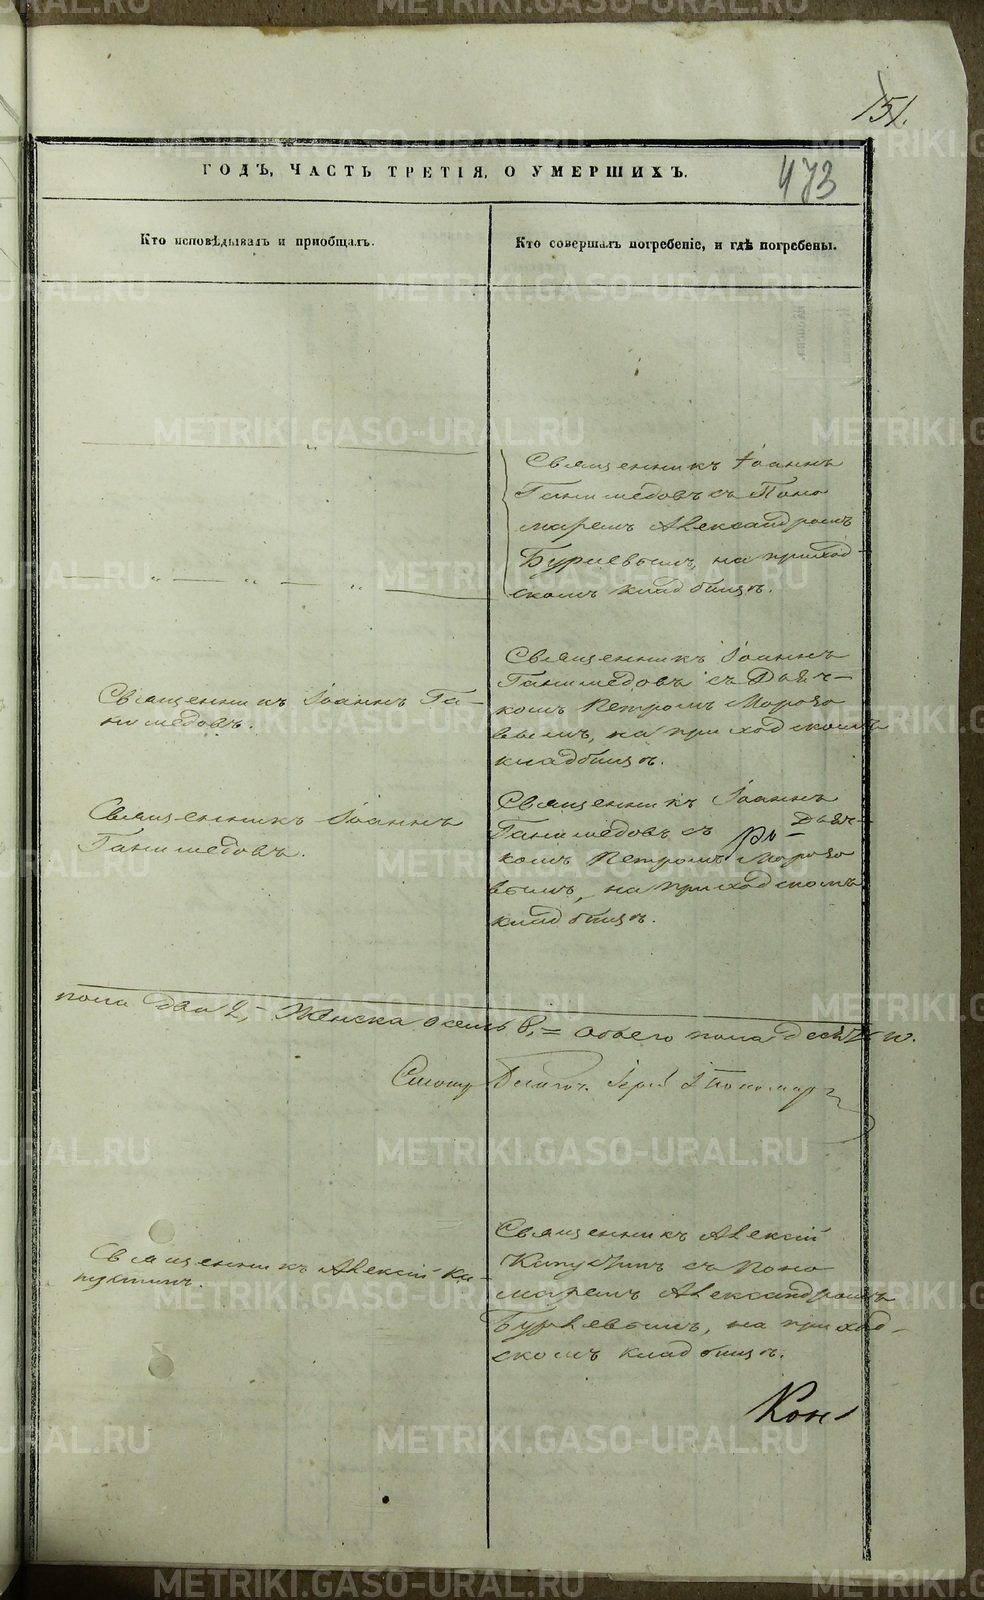 151.
473
ГОДЪ, ЧАСТЬ ТРЕТІЯ, О УМЕРШИХЪ.
Кто исповѣдывалъ и пріобщалъ.
Кто совершалъ погребеніе, и гдѣ погребены.
Священникъ Іоаннъ
Ганимедовъ съ Поно
маремъ Александромъ
Бурневымъ, на приход-
скомъ кладбищѣ.
Священникъ Іоаннъ Га-
нимедовъ.
Священникъ Іоаннъ
Ганимедовъ съ Дьяч-
комъ Петромъ Морозо
вымъ, на приходскомъ
кладбищѣ.
Священникъ Іоаннъ
Ганимедовъ.
Священникъ Іоаннъ
Ганимедовъ съ Дьяч-
комъ Петромъ Морозо
вымъ, на приходскомъ
кладбищѣ.
пола два 2, Женска осемь 8, = обоего пола десять 10.
Священникъ Алексій Ка-
пустинъ.
Священникъ Алексій
Капустинъ съ Поно
маремъ Александромъ
Бурневымъ, на приход-
скомъ кладбищѣ.
Кон
METRIKI.GASO-URAL.RU